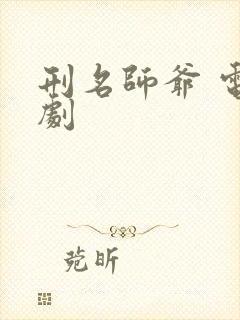 刑名師爺 電
劇
苑昕